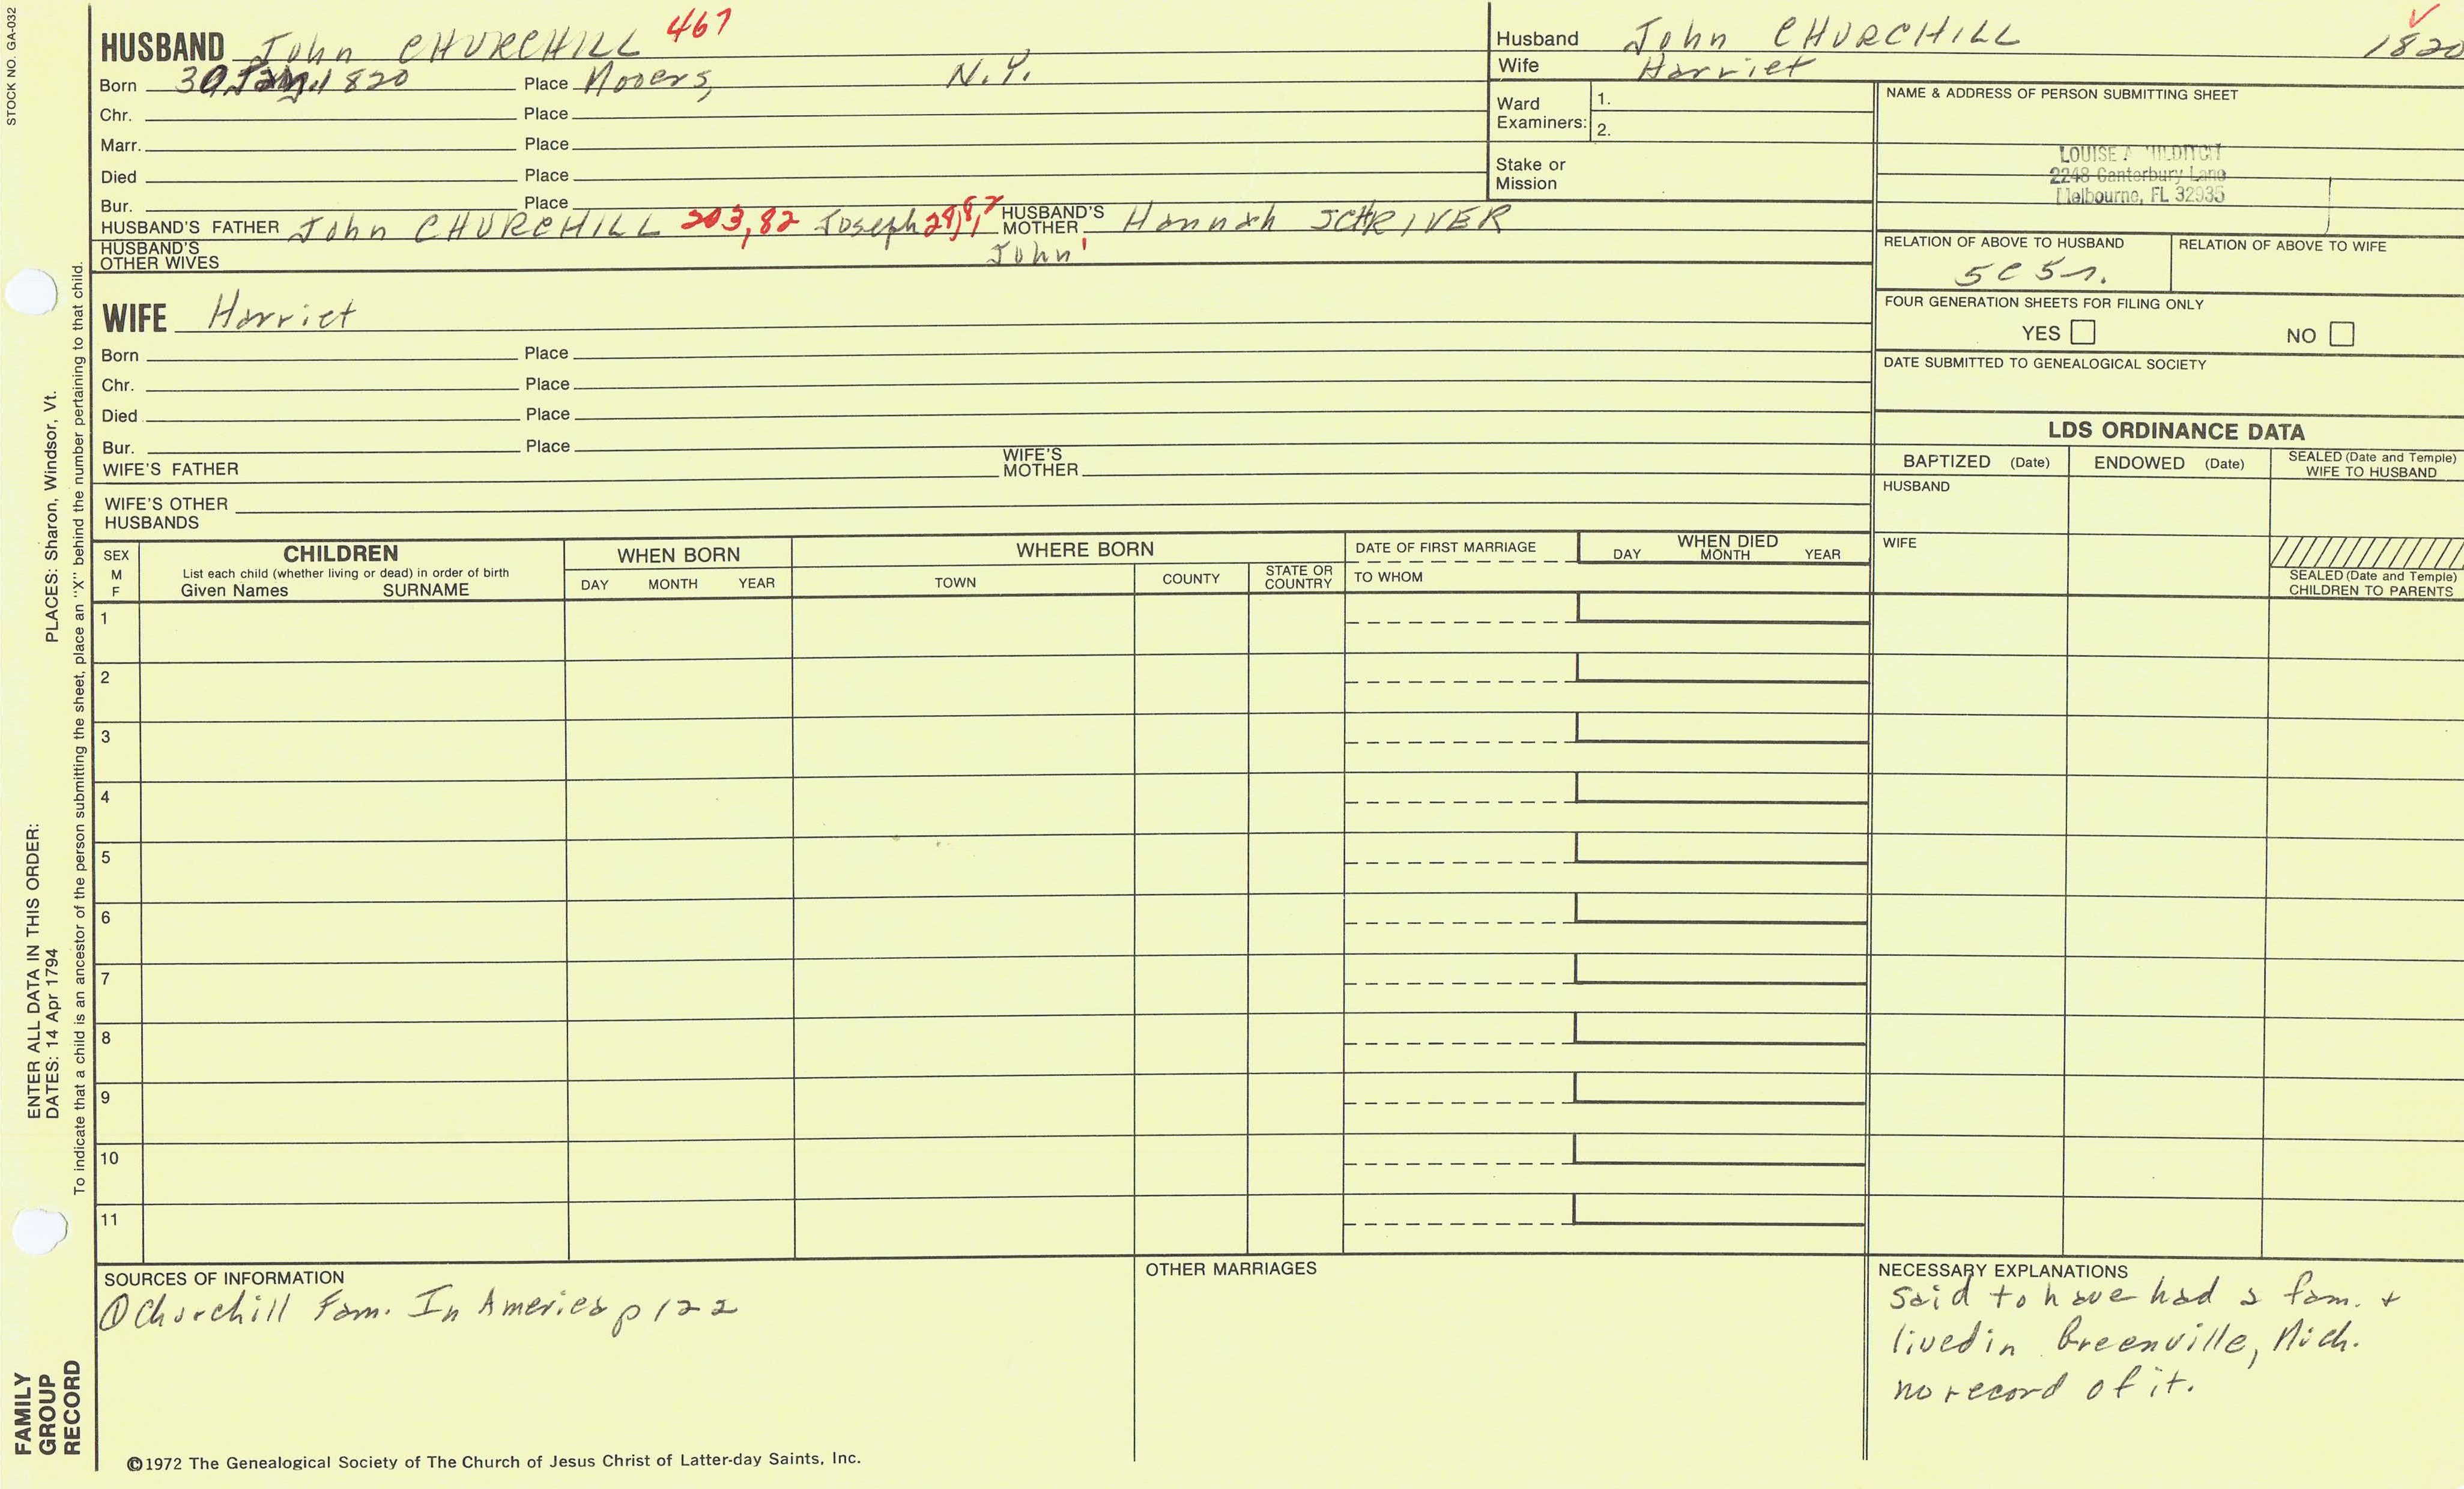 STOCK NO. GA-032
HUSBAND John CHURCHILL 467
Born 30 Jan 1820 Place Mooers, N.Y.
Chr. Place
Marr. Place
Died Place
Bur. Place
HUSBAND'S FATHER John CHURCHILL 203,82 Joseph HUSBAND'S MOTHER Hannah SCHRIVER
HUSBAND'S OTHER WIVES John'
WIFE Harriet
Born Place
Chr. Place
Died Place
Bur. Place
WIFE'S FATHER WIFE'S MOTHER
WIFE'S OTHER HUSBANDS
Husband John CHURCHILL 1820
Wife Harriet
Ward Examiners: 1.
2.
Stake or Mission
NAME & ADDRESS OF PERSON SUBMITTING SHEET
LOUISE
2248 Canterbury Lane
Melbourne, FL 32935
RELATION OF ABOVE TO HUSBAND RELATION OF ABOVE TO WIFE
5C5r.
FOUR GENERATION SHEETS FOR FILING ONLY
YES NO
DATE SUBMITTED TO GENEALOGICAL SOCIETY
LDS ORDINANCE DATA
BAPTIZED (Date) ENDOWED (Date) SEALED (Date and Temple) WIFE TO HUSBAND
HUSBAND
WIFE
SEALED (Date and Temple) CHILDREN TO PARENTS
SEX M F
CHILDREN
List each child (whether living or dead) in order of birth
Given Names SURNAME
WHEN BORN
DAY MONTH YEAR
WHERE BORN
TOWN COUNTY STATE OR COUNTRY
DATE OF FIRST MARRIAGE
TO WHOM
WHEN DIED
DAY MONTH YEAR
1
2
3
4
5
6
7
8
9
10
11
SOURCES OF INFORMATION
① Churchill Fam. In America p 122
OTHER MARRIAGES
NECESSARY EXPLANATIONS
Said to have had a fam. +
lived in Greenville, Mich.
no record of it.
©1972 The Genealogical Society of The Church of Jesus Christ of Latter-day Saints, Inc.
FAMILY
GROUP
RECORD
ENTER ALL DATA IN THIS ORDER:
DATES: 14 Apr 1794 PLACES: Sharon, Windsor, Vt.
To indicate that a child is an ancestor of the person submitting the sheet, place an "X" behind the number pertaining to that child.